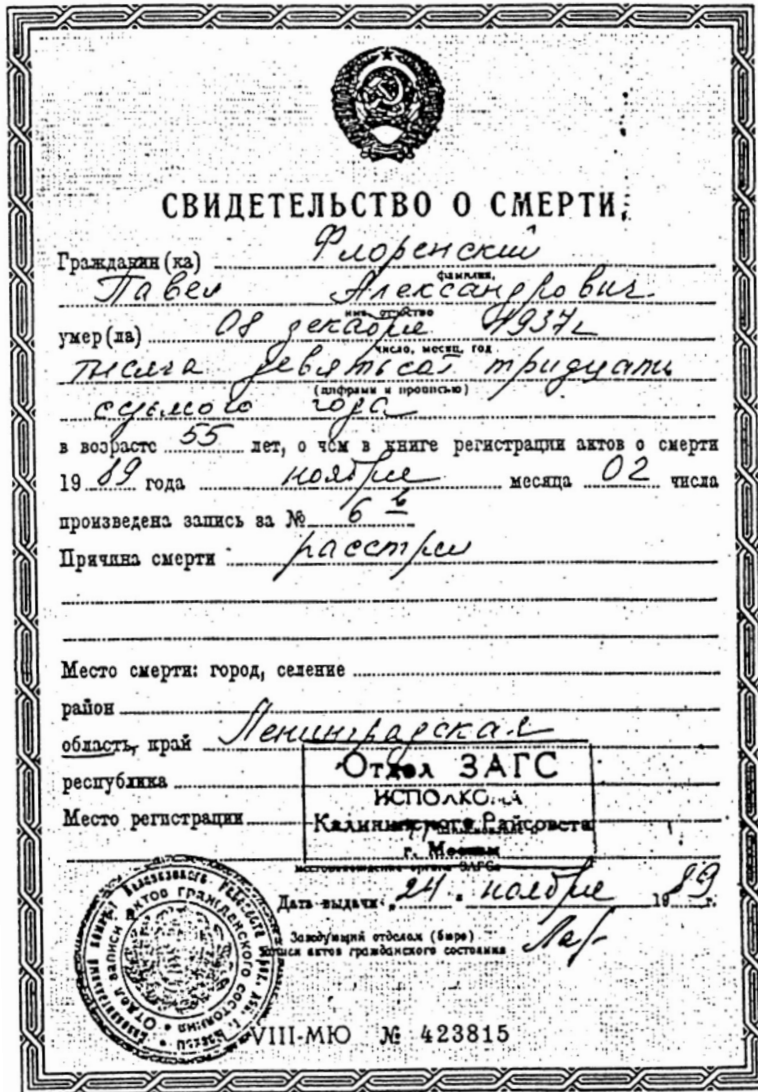 СВИДЕТЕЛЬСТВО О СМЕРТИ
Гражданин (ка) Флоренский
фамилия,
Павел Александрович
имя, отчество
умер (ла) 08 декабря 1937г
число, месяц, год
тысяча девятьсот тридцать
(цифрами и прописью)
седьмого года
в возрасте 55 лет, о чём в книге регистрации актов о смерти
19 89 года ноября месяца 02 числа
произведена запись за № 6
Причина смерти расстрел
Место смерти: город, селение
район
область, край Ленинградская
республика
Отдел ЗАГС
ИСПОЛКОМА
Место регистрации Калининского Райсовета
г. Москвы
местонахождение органа ЗАГСа
Дата выдачи „24" ноября 19 89 г.
Заведующий отделом (бюро)
записи актов гражданского состояния
ОТДЕЛ ЗАПИСИ АКТОВ ГРАЖДАНСКОГО СОСТОЯНИЯ
VIII-МЮ № 423815